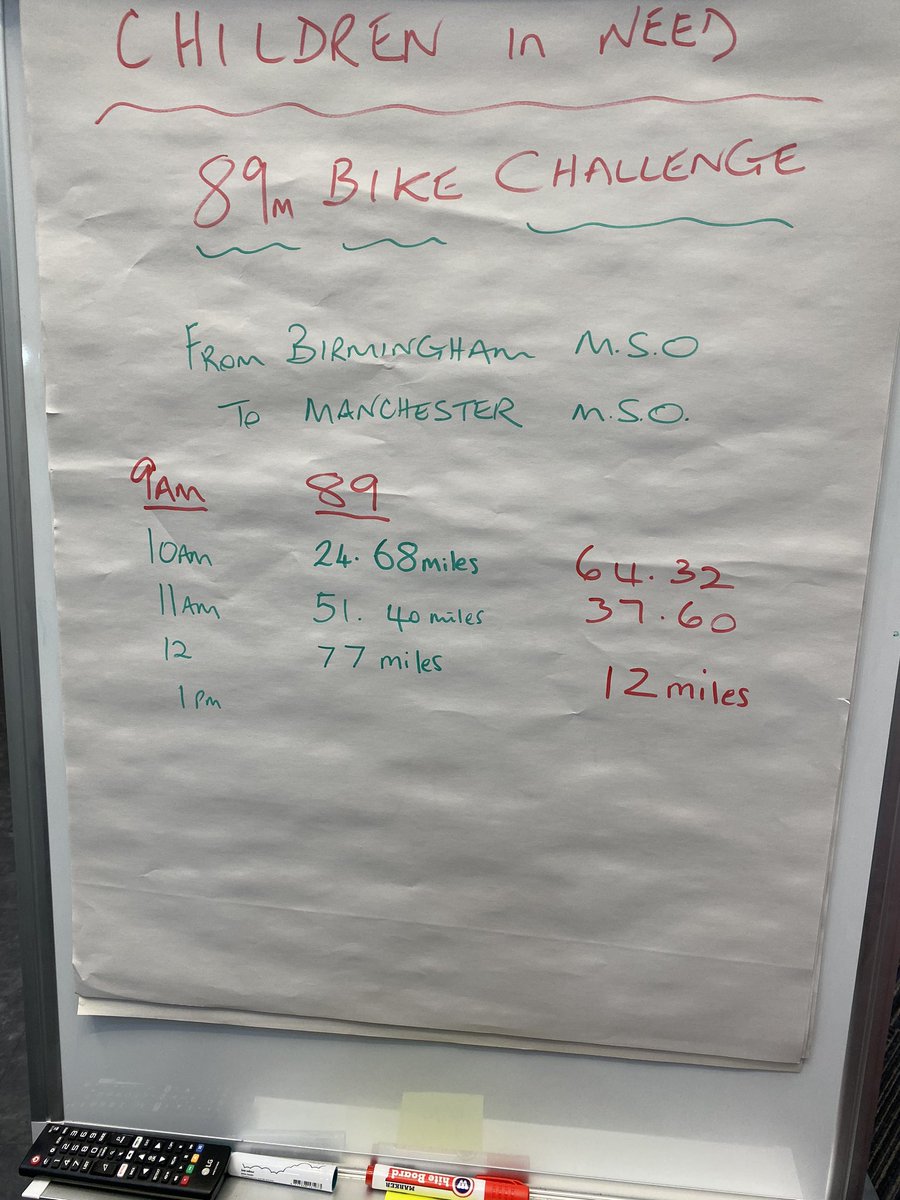 CHILDREN in NEED
89m BIKE CHALLENGE
FROM BIRMINGHAM M.S.O
TO MANCHESTER M.S.O.
9AM 89
10AM 24.68 miles 64.32
11AM 51.40 miles 37.60
12 77 miles 12 miles
1pm
LG
hite Board
MARKER